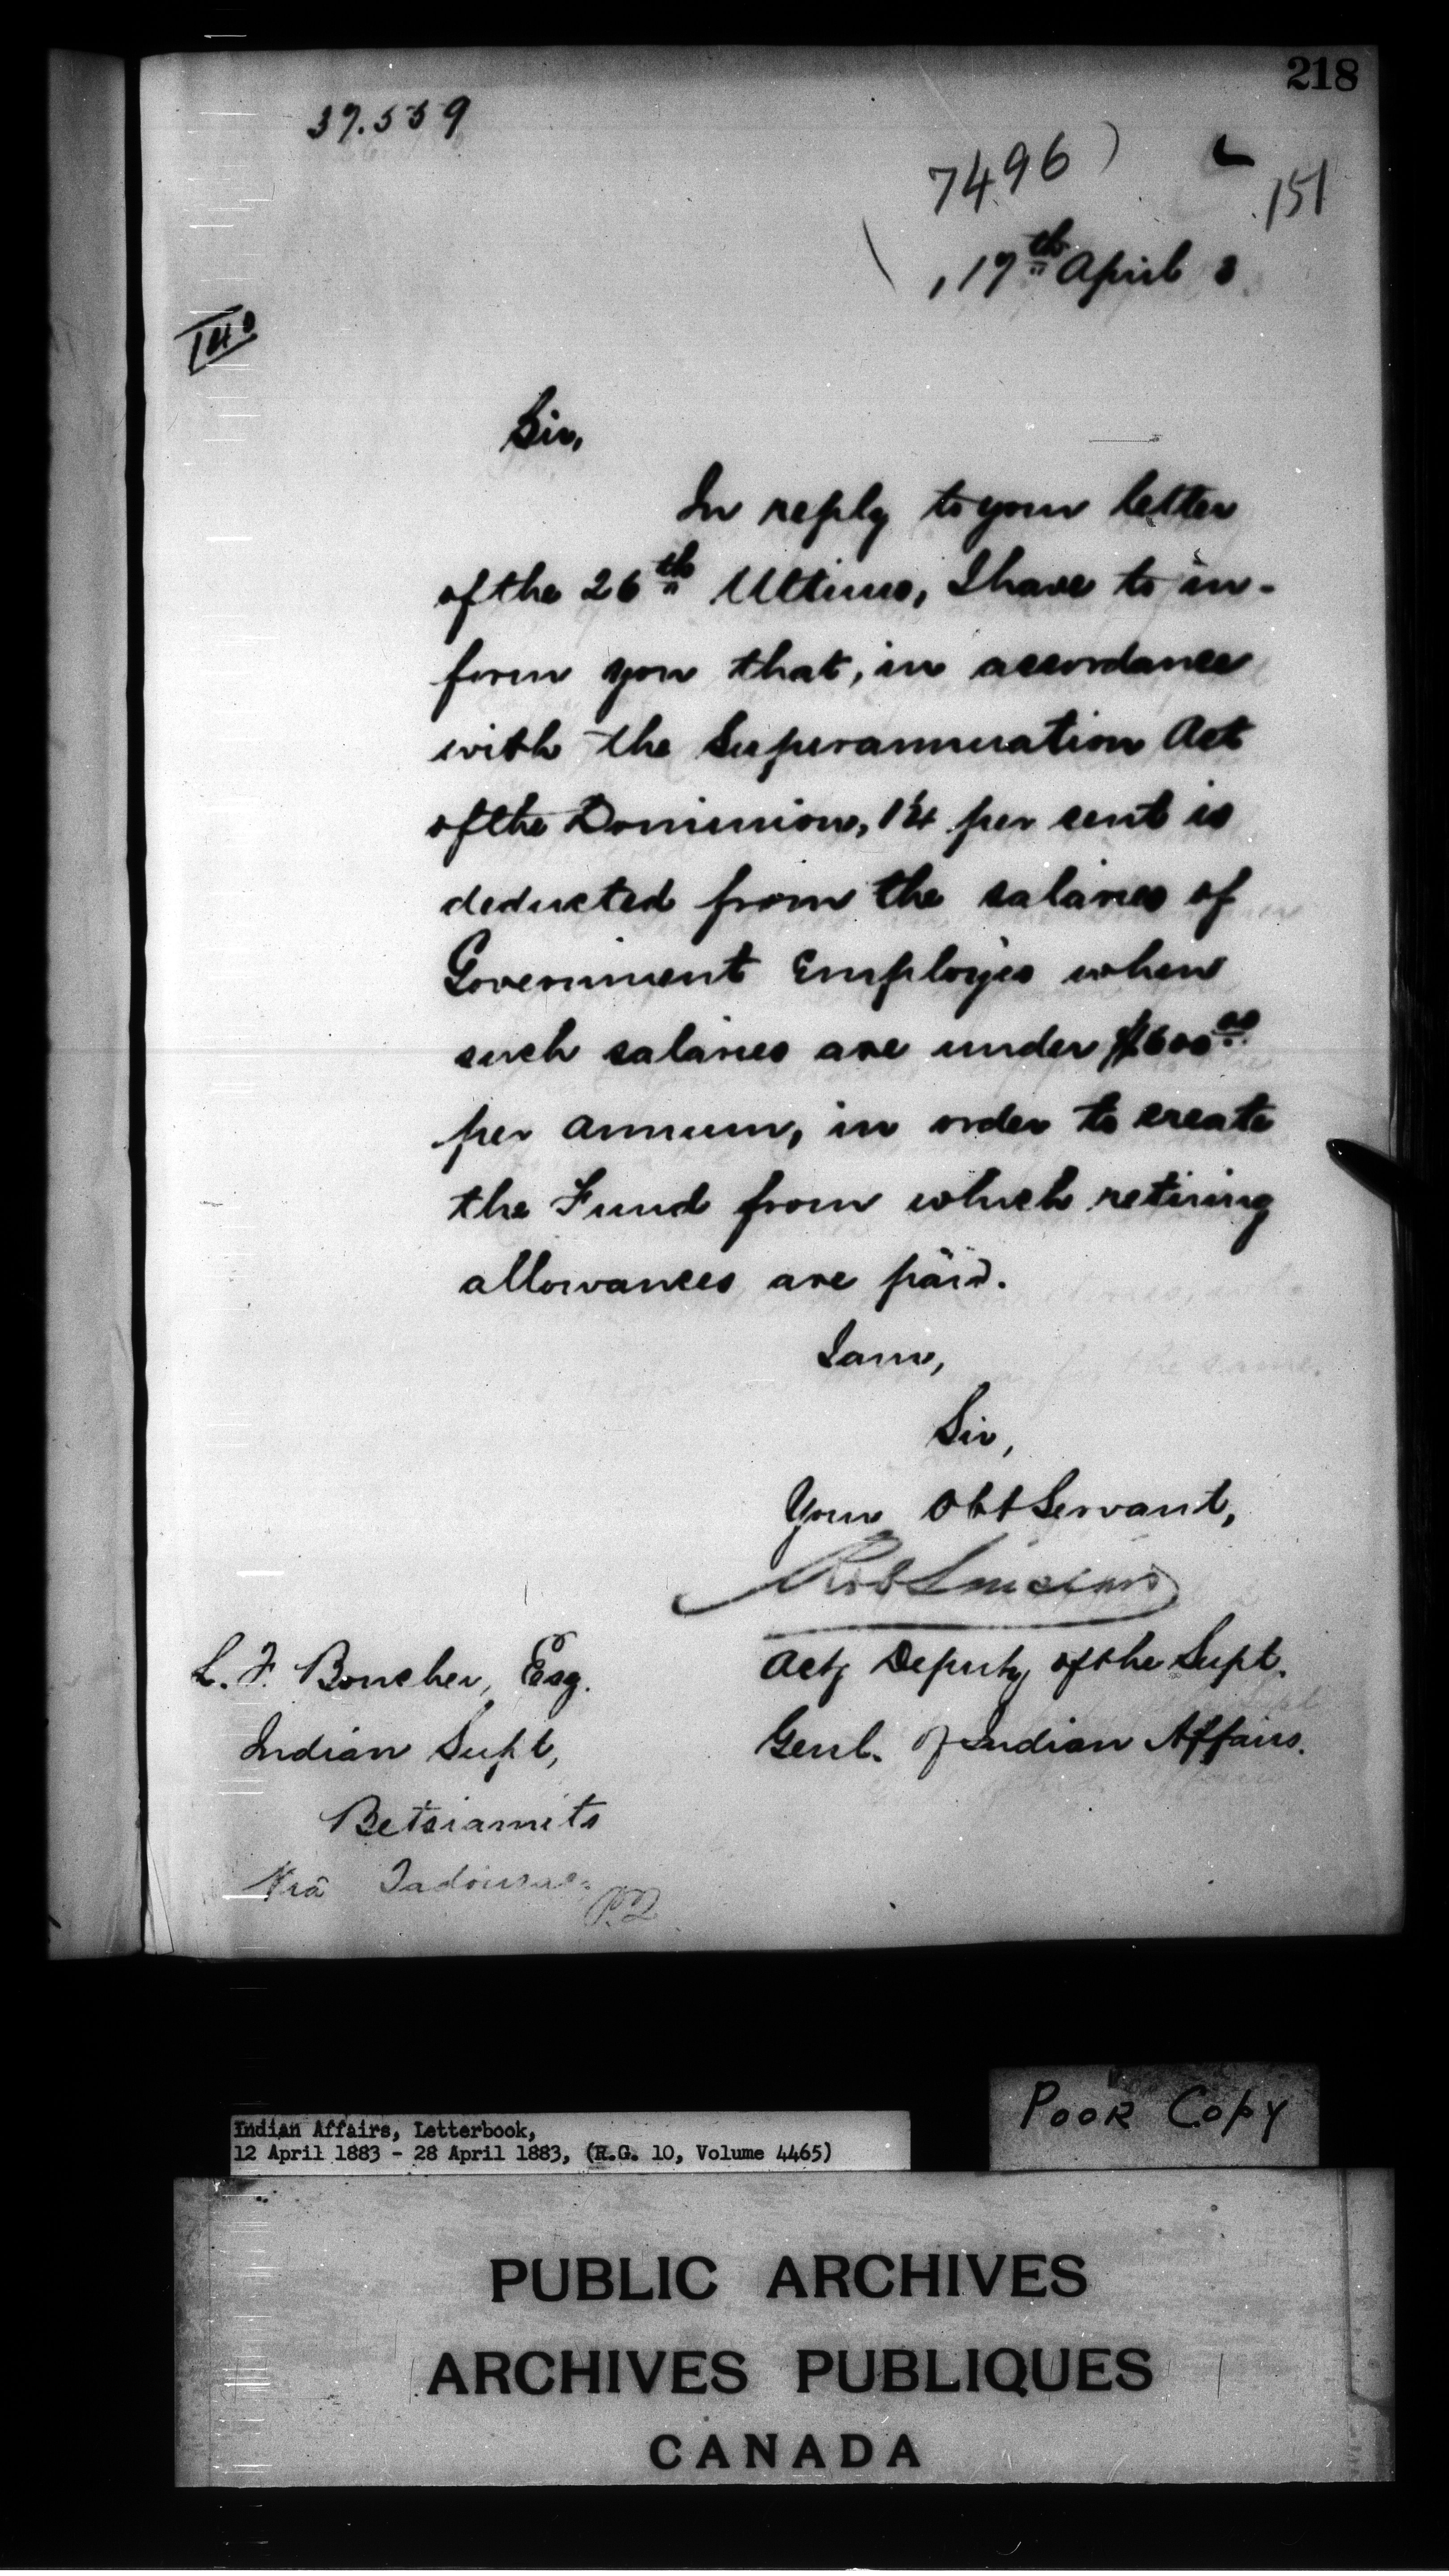 218
37.559
7496
151
17th April 3
Sir,
In reply to your letter
of the 26th Ultimo, I have to in-
form you that, in accordance
with the Superannuation Act
of the Dominion, 1¼ per cent is
deducted from the salaries of
Government Employés when
such salaries are under $600.00
per annum, in order to create
the Fund from which retiring
allowances are paid.
I am,
Sir,
Your Obt Servant,
L. F. Boucher, Esq.
Acty Deputy of the Supt.
Indian Supt,
Genl. of Indian Affairs.
Betsiamits
Via Tadousac
P.Q
Poor Copy
Indian Affairs, Letterbook,
12 April 1883 - 28 April 1883, (R.G. 10, Volume 4465)
PUBLIC ARCHIVES
ARCHIVES PUBLIQUES
CANADA